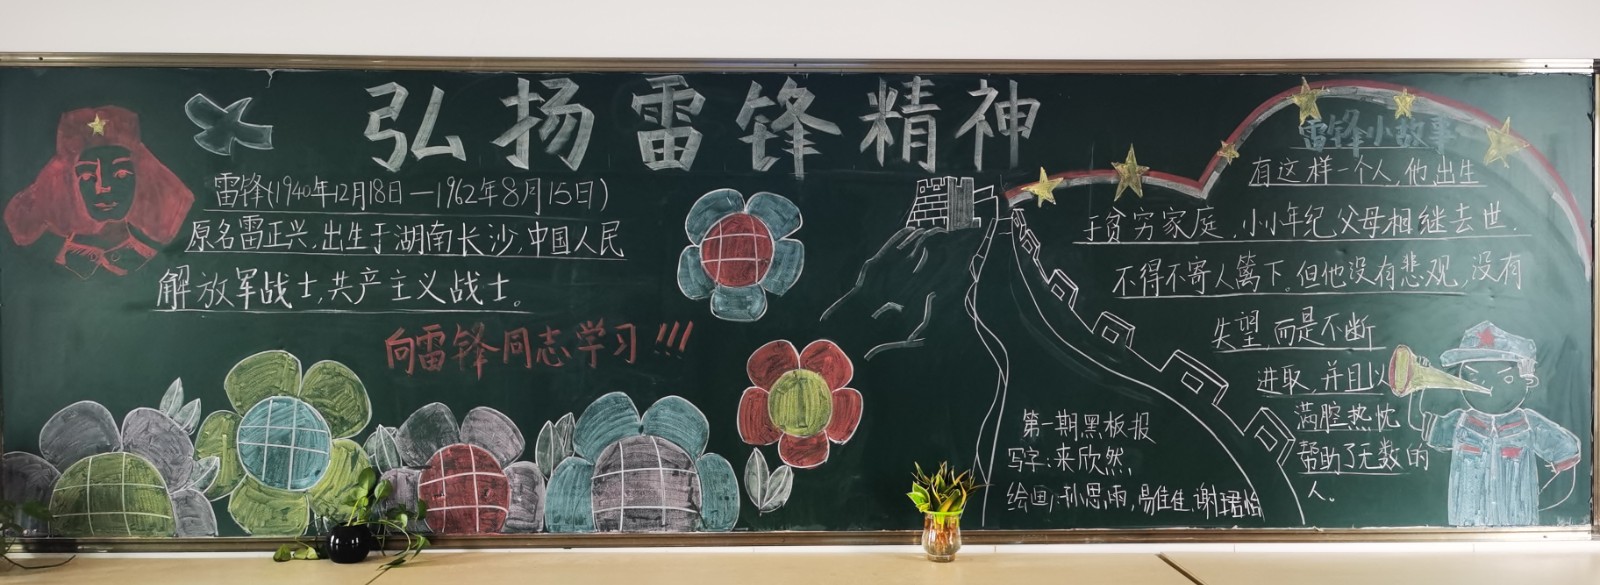 弘扬雷锋精神
雷锋(1940年12月18日—1962年8月15日)
原名雷正兴,出生于湖南长沙,中国人民
解放军战士,共产主义战士。
向雷锋同志学习!!!
雷锋小故事
有这样一个人,他出生
于贫穷家庭,小小年纪父母相继去世.
不得不寄人篱下。但他没有悲观,没有
失望,而是不断
进取,并且以
满腔热忱
帮助了无数的
人。
第一期黑板报
写字:来欣然、
绘画:孙思雨,易佳佳,谢珺怡